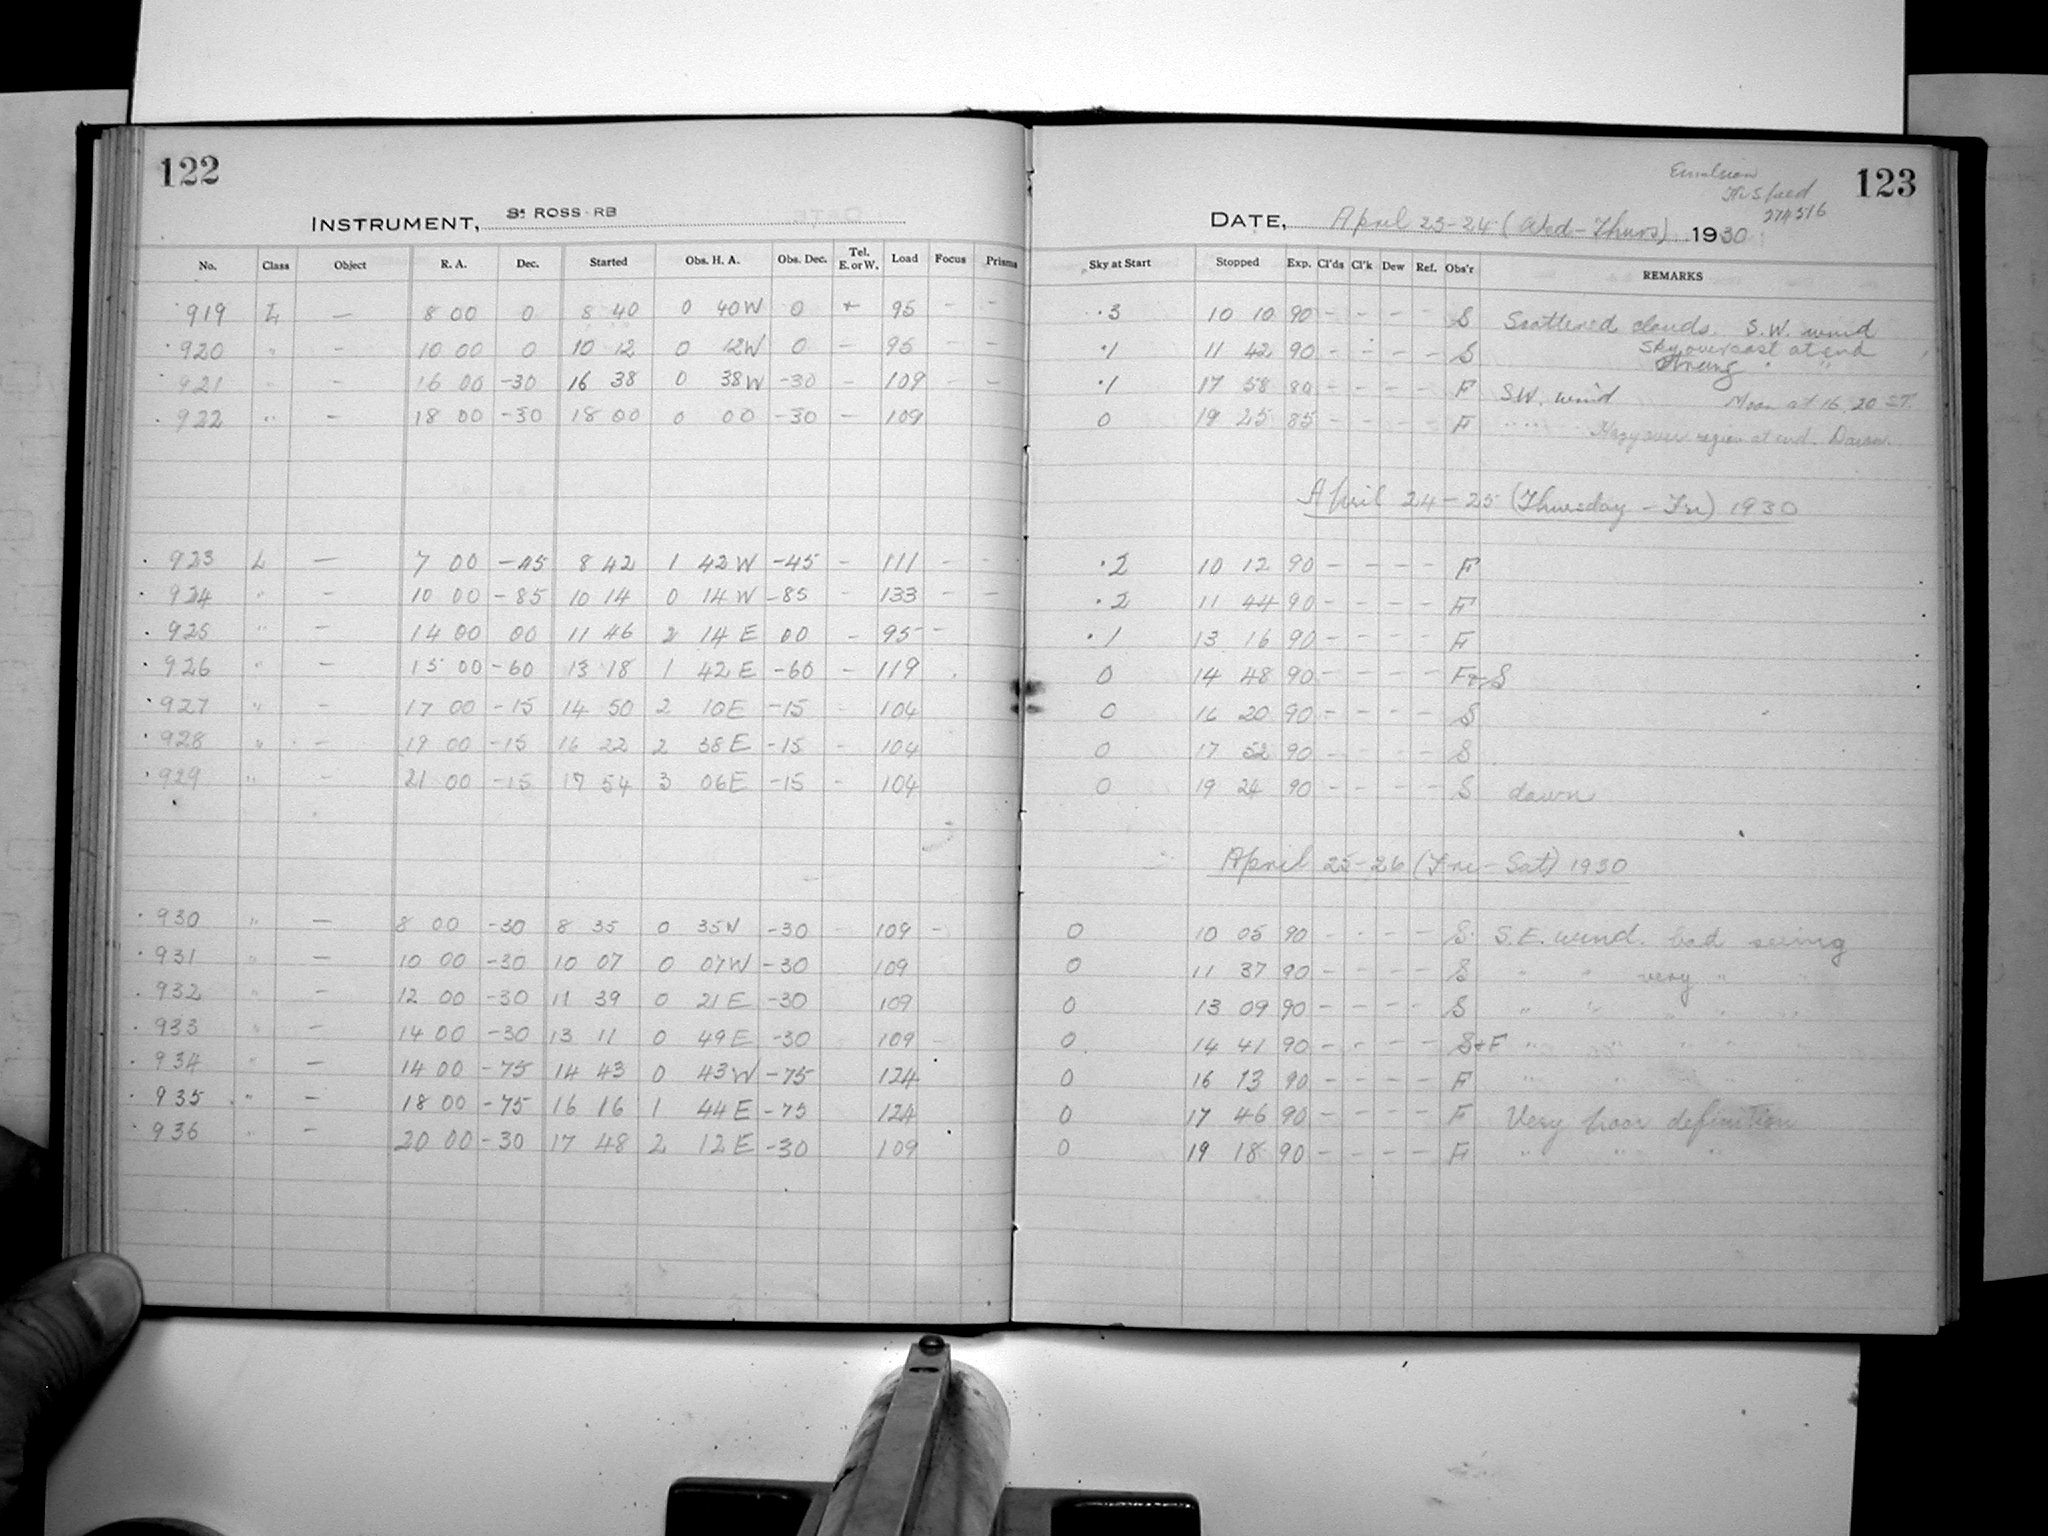 122
INSTRUMENT, 3" ROSS-RB
No. Class Object R. A. Dec. Started Obs. H. A. Obs. Dec. Tel. E. or W. Load Focus Prisms
919 L — 8 00 0 8 40 0 40 W 0 95 - -
920 " - 10 00 0 10 12 0 12W 0 - 95 - -
921 " - 16 00 -30 16 38 0 38W -30 - 109 - -
922 " - 18 00 -30 18 00 0 00 -30 - 109
923 L — 7 00 -45 8 42 1 42 W -45 - 111 - -
924 " - 10 00 -85 10 14 0 14 W -85 - 133 - -
925 " - 14 00 00 11 46 2 14 E 00 - 95 -
926 " - 15 00 -60 13 18 1 42 E -60 - 119
927 " - 17 00 -15 14 50 2 10E -15 - 104
928 " - 19 00 -15 16 22 2 38E -15 - 104
929 " - 21 00 -15 17 54 3 06E -15 - 104
930 " — 8 00 -30 8 35 0 35W -30 109 -
931 " — 10 00 -30 10 07 0 07W -30 109
932 " - 12 00 -30 11 39 0 21 E -30 109
933 " - 14 00 -30 13 11 0 49 E -30 109
934 " - 14 00 -75 14 43 0 43W -75 124
935 " - 18 00 -75 16 16 1 44 E -75 124
936 " - 20 00 -30 17 48 2 12 E -30 109
123
Emulsion
Hi Speed
DATE, April 23-24 (Wed-Thurs) 1930
Sky at Start Stopped Exp. Cl'ds Cl'k Dew Ref. Obs'r REMARKS
.3 10 10 90 - - - - S Scattered clouds. S.W. wind
.1 11 42 90 - - - - S Sky overcast at end
Strong " "
.1 17 58 80 - - - - F S.W. wind Moon at 16 20 ST
0 19 25 85 - - - - F " " Hazy over region at end. Dawn.
April 24-25 (Thursday - Fri) 1930
.2 10 12 90 - - - - F
.2 11 44 90 - - - - F
.1 13 16 90 - - - - F
0 14 48 90 - - - - F & S
0 16 20 90 - - - - S
0 17 52 90 - - - - S
0 19 24 90 - - - - S dawn
April 25-26 (Fri-Sat) 1930
0 10 05 90 - - - - S S.E. wind. bad seeing
0 11 37 90 - - - - S " " very " "
0 13 09 90 - - - - S " " " " "
0 14 41 90 - - - - S & F " " " " "
0 16 13 90 - - - - F " " " " "
0 17 46 90 - - - - F Very poor definition
0 19 18 90 - - - - F " " "